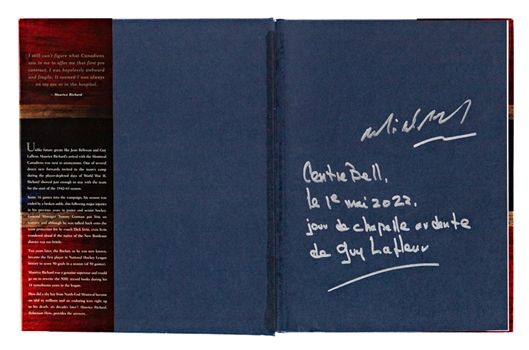 I still can't figure what Canadiens
saw in me to offer me that first pro
contract. I was hopelessly awkward
and fragile. It seemed I was always
on my ass or in the hospital.
– Maurice Richard
Unlike future greats like Jean Béliveau and Guy
Lafleur, Maurice Richard's arrival with the Montreal
Canadiens was next to anonymous. One of several
dozen new forwards invited to the team's camp
during the player-depleted days of World War II,
Richard showed just enough to stay with the team
for the start of the 1942-43 season.
Some 16 games into the campaign, his season was
ended by a broken ankle, this following major injuries
in his previous years in junior and senior hockey.
General Manager Tommy Gorman put him on
waivers, and although he was talked back onto the
team
wondered aloud if the native of the New Bordeaux
district was too brittle.
Two years later, the Rocket, as he was now known,
became the first player in National Hockey League
history to score 50 goals in a season (of 50 games).
Maurice Richard was a genuine superstar and would
go on to rewrite the NHL record books during his
18 tumultuous years in the league.
How did a shy boy from North End Montreal become
an idol to millions and an enduring icon right up
to his death, six decades later? Maurice Richard,
Reluctant Hero, provides the answers.
Centre Bell,
le 1e mai 2022,
jour de chapelle ardente
de Guy Lafleur